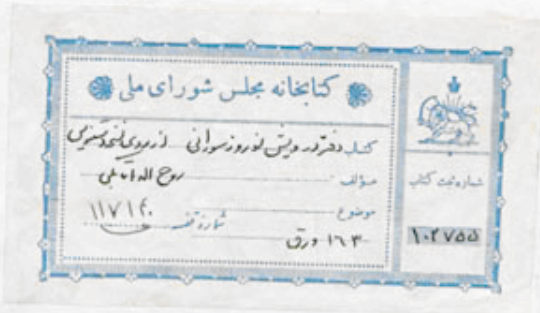 کتابخانه مجلس شورای ملی
کتاب دفتر درویش نوروز سورانی از روی نسخه
مؤلف روح الله
موضوع
شماره قفسه ۱۱۷۱۴۰
۱۶۳ ورق
شماره ثبت کتاب
۱۰۲۷۵۵